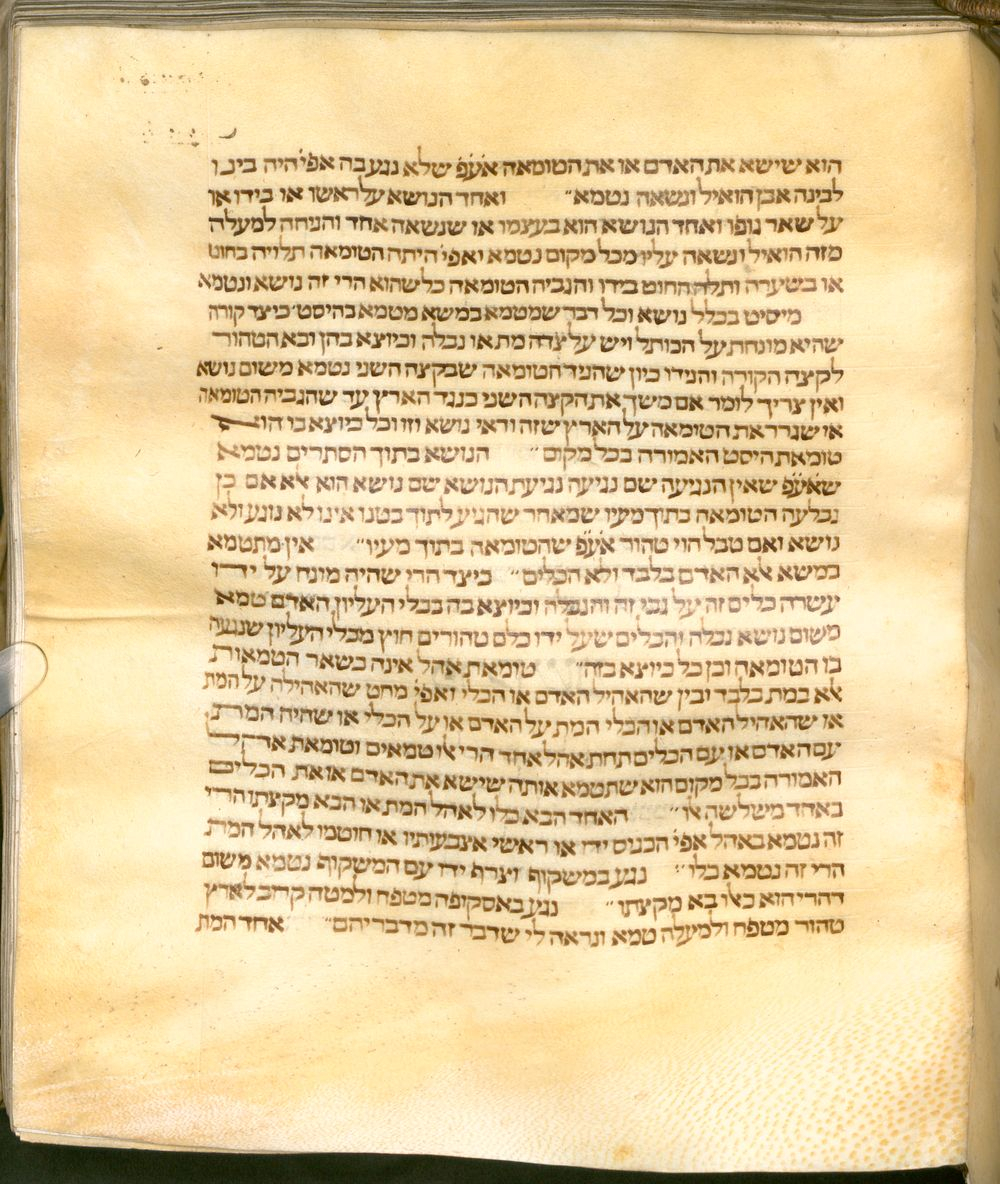 הוא שישא את האדם או את הטומאה אע̇פ̇ שלא נגע בה אפי׳ היה בינו
לבינה אבן הואיל ונשאה נטמא״ ואחד הנושא על ראשו או בידו או
על שאר גופו ואחד הנושא הוא בעצמו או שנשאה אחד והניחה למעלה
מזה הואיל ונשאה עליו מכל מקום נטמא ואפי׳ היתה הטומאה תלויה בחוט
או בשערה ותלה החוט בידו והגביה הטומאה כל שהוא הרי זה נושא ונטמא
מיסיט בכלל נושא וכל דבר שמטמא במשא מטמא בהיסט כיצד קורה
שהיא מונחת על הכותל ויש על צדה מת או נבלה וכיוצא בהן ובא הטהור
לקצה הקורה והנידו כיון שהניד הטומאה שבקצה השני נטמא משום נושא
ואין צריך לומר אם משך את הקצה השני כנגד הארץ עד שהגביה הטומאה
או שגרר את הטומאה על הארץ שזה ודאי נושא וזו וכל כיוצא בו הוא
טומאת היסט האמורה בכל מקום״ הנושא בתוך הסתרים נטמא
שאע̇פ̇ שאין הנגיעה שם נגיעה נגיעת הנושא שם נושא הוא אלא אם כן
נבלעה הטומאה בתוך מעיו שמאחר שהגיע לתוך בטנו אינו לא נוגע ולא
נושא ואם טבל הוי טהור אע̇פ̇ שהטומאה בתוך מעיו״ אין מתטמא
במשא אלא האדם בלבד ולא הכלים״ כיצד הרי שהיה מונח על ידו
עשרה כלים זה על גבי זה והנבלה וכיוצא בה בכלי העליון האדם טמא
משום נושא נבלה והכלים שעל ידו כלם טהורים חוץ מכלי העליון שנגעה
בו הטומאה וכן כל כיוצא בזה״ טומאת אהל אינה בשאר הטמאות
אלא במת בלבד ובין שהאהיל האדם או הכלי ואפי׳ מחט שהאהילה על המת
או שהאהיל האדם או הכלי המת על האדם או על הכלי או שהיה המת
עם האדם או עם הכלים תחת אהל אחד הרי אלו טמאים וטומאת אהל
האמורה בכל מקום הוא שתטמא אותה שישא את האדם או את הכלים
באחד משלשה אלו״ האחד הבא כלו לאהל המת או הבא מקצתו הרי
זה נטמא באהל אפי׳ הכניס ידו או ראשי אצבעותיו או חוטמו לאהל המת
הרי זה נטמא כלו״ נגע במשקוף וצרף ידו עם המשקוף נטמא משום
דהרי הוא כאלו בא מקצתו״ נגע באסקופה מטפח ולמטה קרוב לארץ
טהור מטפח ולמעלה טמא ונראה לי שדבר זה מדבריהם״ אחד המת